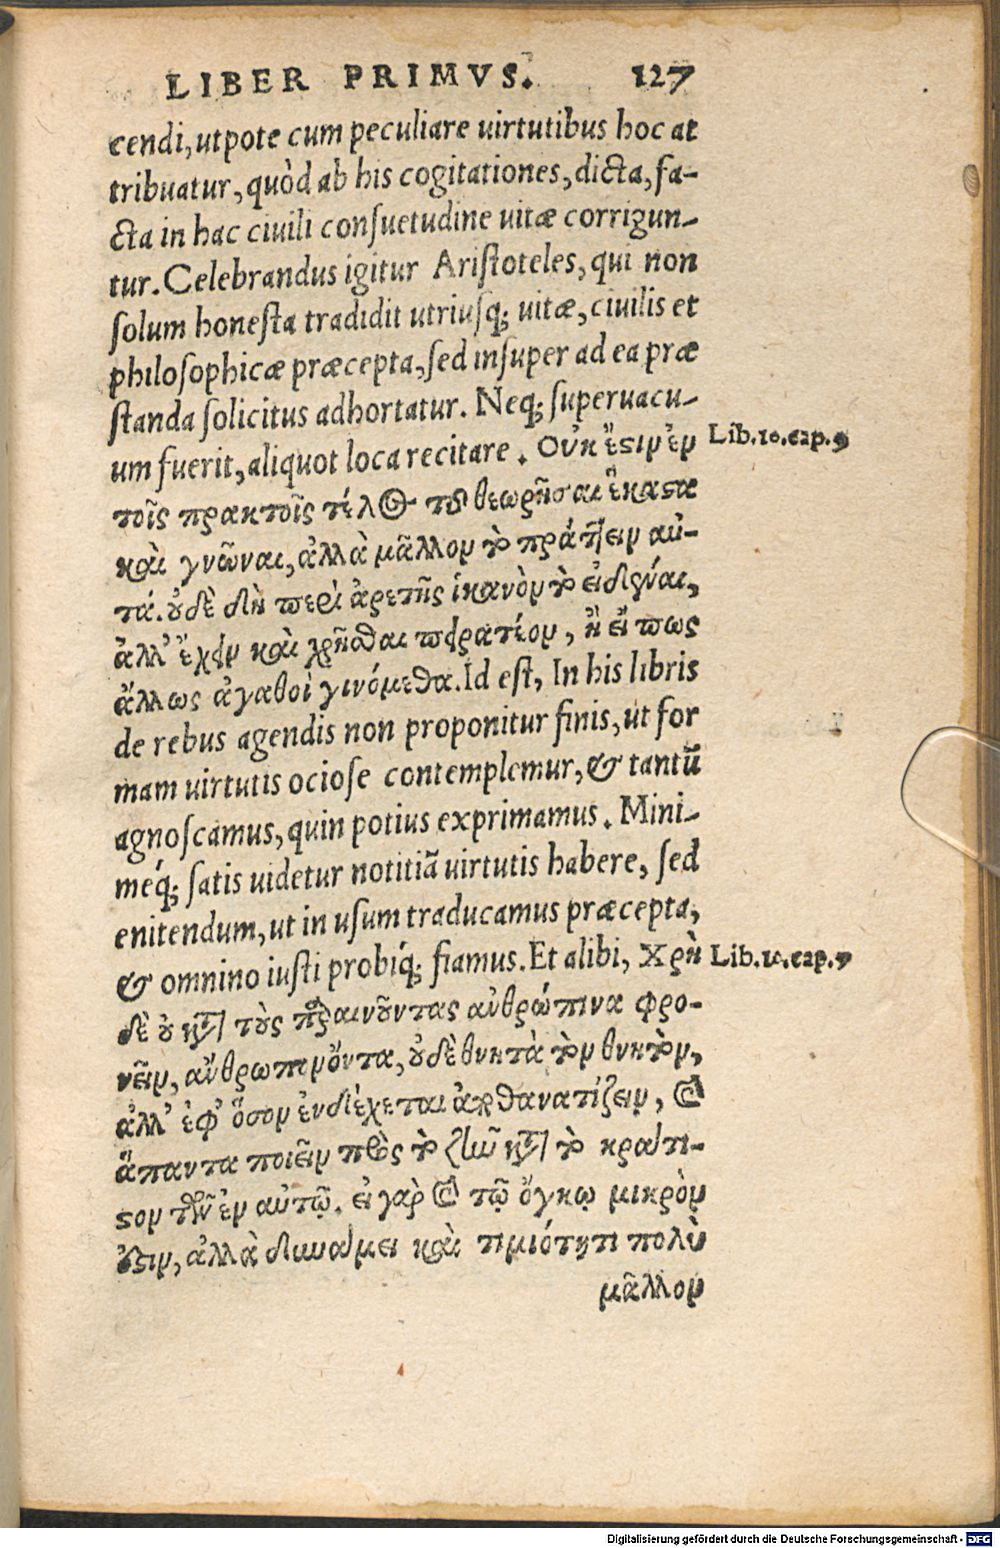 LIBER PRIMVS. 127
cendi, utpote cum peculiare uirtutibus hoc at
tribuatur, quòd ab his cogitationes, dicta, fa-
cta in hac ciuili consuetudine uitæ corrigun-
tur. Celebrandus igitur Aristoteles, qui non
solum honesta tradidit utriusq; uitæ, ciuilis et
philosophicæ præcepta, sed insuper ad ea præ
standa solicitus adhortatur. Neq; superuacu-
um fuerit, aliquot loca recitare. Οὐκ ἔστιν ἐν
Lib.10.cap.9
τοῖς πρακτοῖς τέλος τὸ θεωρῆσαι ἕκαστα
καὶ γνῶναι, ἀλλὰ μᾶλλον τὸ πράττειν αὐ-
τά. οὐδὲ δὴ περὶ ἀρετῆς ἱκανὸν τὸ εἰδέναι,
ἀλλ' ἔχειν καὶ χρῆσθαι πειρατέον, ἢ εἴ πως
ἄλλως ἀγαθοὶ γινόμεθα. Id est, In his libris
de rebus agendis non proponitur finis, ut for
mam uirtutis ociose contemplemur, & tantũ
agnoscamus, quin potius exprimamus. Mini-
méq; satis uidetur notitiã uirtutis habere, sed
enitendum, ut in usum traducamus præcepta,
& omnino iusti probiq́; fiamus. Et alibi, Χρὴ
Lib.10.cap.7
δὲ οὐ κατὰ τοὺς παραινοῦντας ἀνθρώπινα φρο-
νεῖν, ἄνθρωπον ὄντα, οὐδὲ θνητὰ τὸν θνητὸν,
ἀλλ' ἐφ' ὅσον ἐνδέχεται ἀπαθανατίζειν, καὶ
ἅπαντα ποιεῖν πρὸς τὸ ζῆν κατὰ τὸ κράτι-
στον τῶν ἐν αὐτῷ. εἰ γὰρ καὶ τῷ ὄγκῳ μικρὸν
ἐστιν, ἀλλὰ δυνάμει καὶ τιμιότητι πολὺ
μᾶλλον
Digitalisierung gefördert durch die Deutsche Forschungsgemeinschaft - DFG